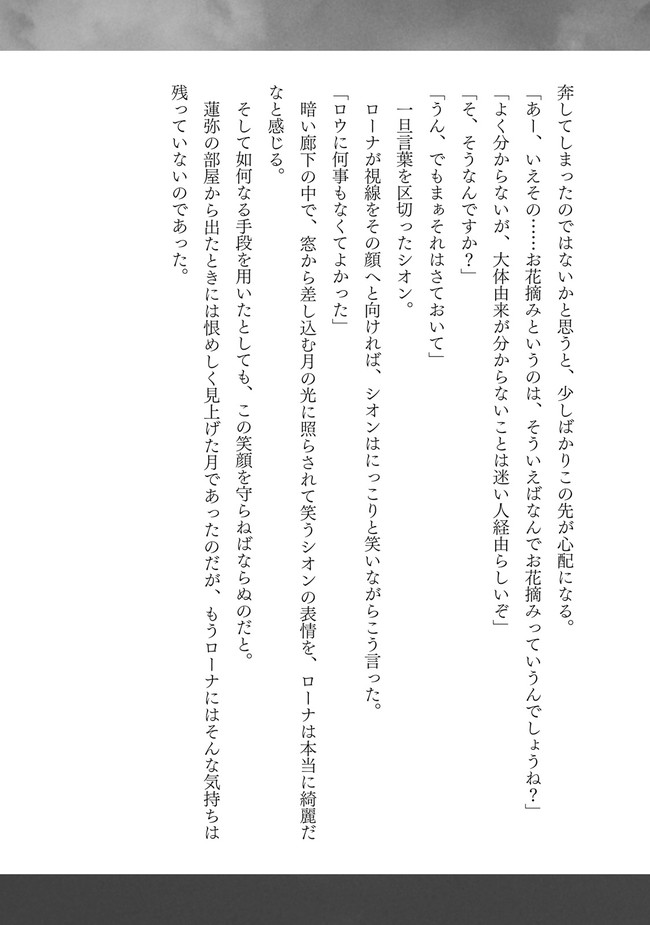 奔してしまったのではないかと思うと、少しばかりこの先が心配になる。
「あー、いえその……お花摘みというのは、そういえばなんでお花摘みっていうんでしょうね？」
「よく分からないが、大体由来が分からないことは迷い人経由らしいぞ」
「そ、そうなんですか？」
「うん、でもまぁそれはさておいて」
一旦言葉を区切ったシオン。
ローナが視線をその顔へと向ければ、シオンはにっこりと笑いながらこう言った。
「ロウに何事もなくてよかった」
暗い廊下の中で、窓から差し込む月の光に照らされて笑うシオンの表情を、ローナは本当に綺麗だ
なと感じる。
そして如何なる手段を用いたとしても、この笑顔を守らねばならぬのだと。
蓮弥の部屋から出たときには恨めしく見上げた月であったのだが、もうローナにはそんな気持ちは
残っていないのであった。